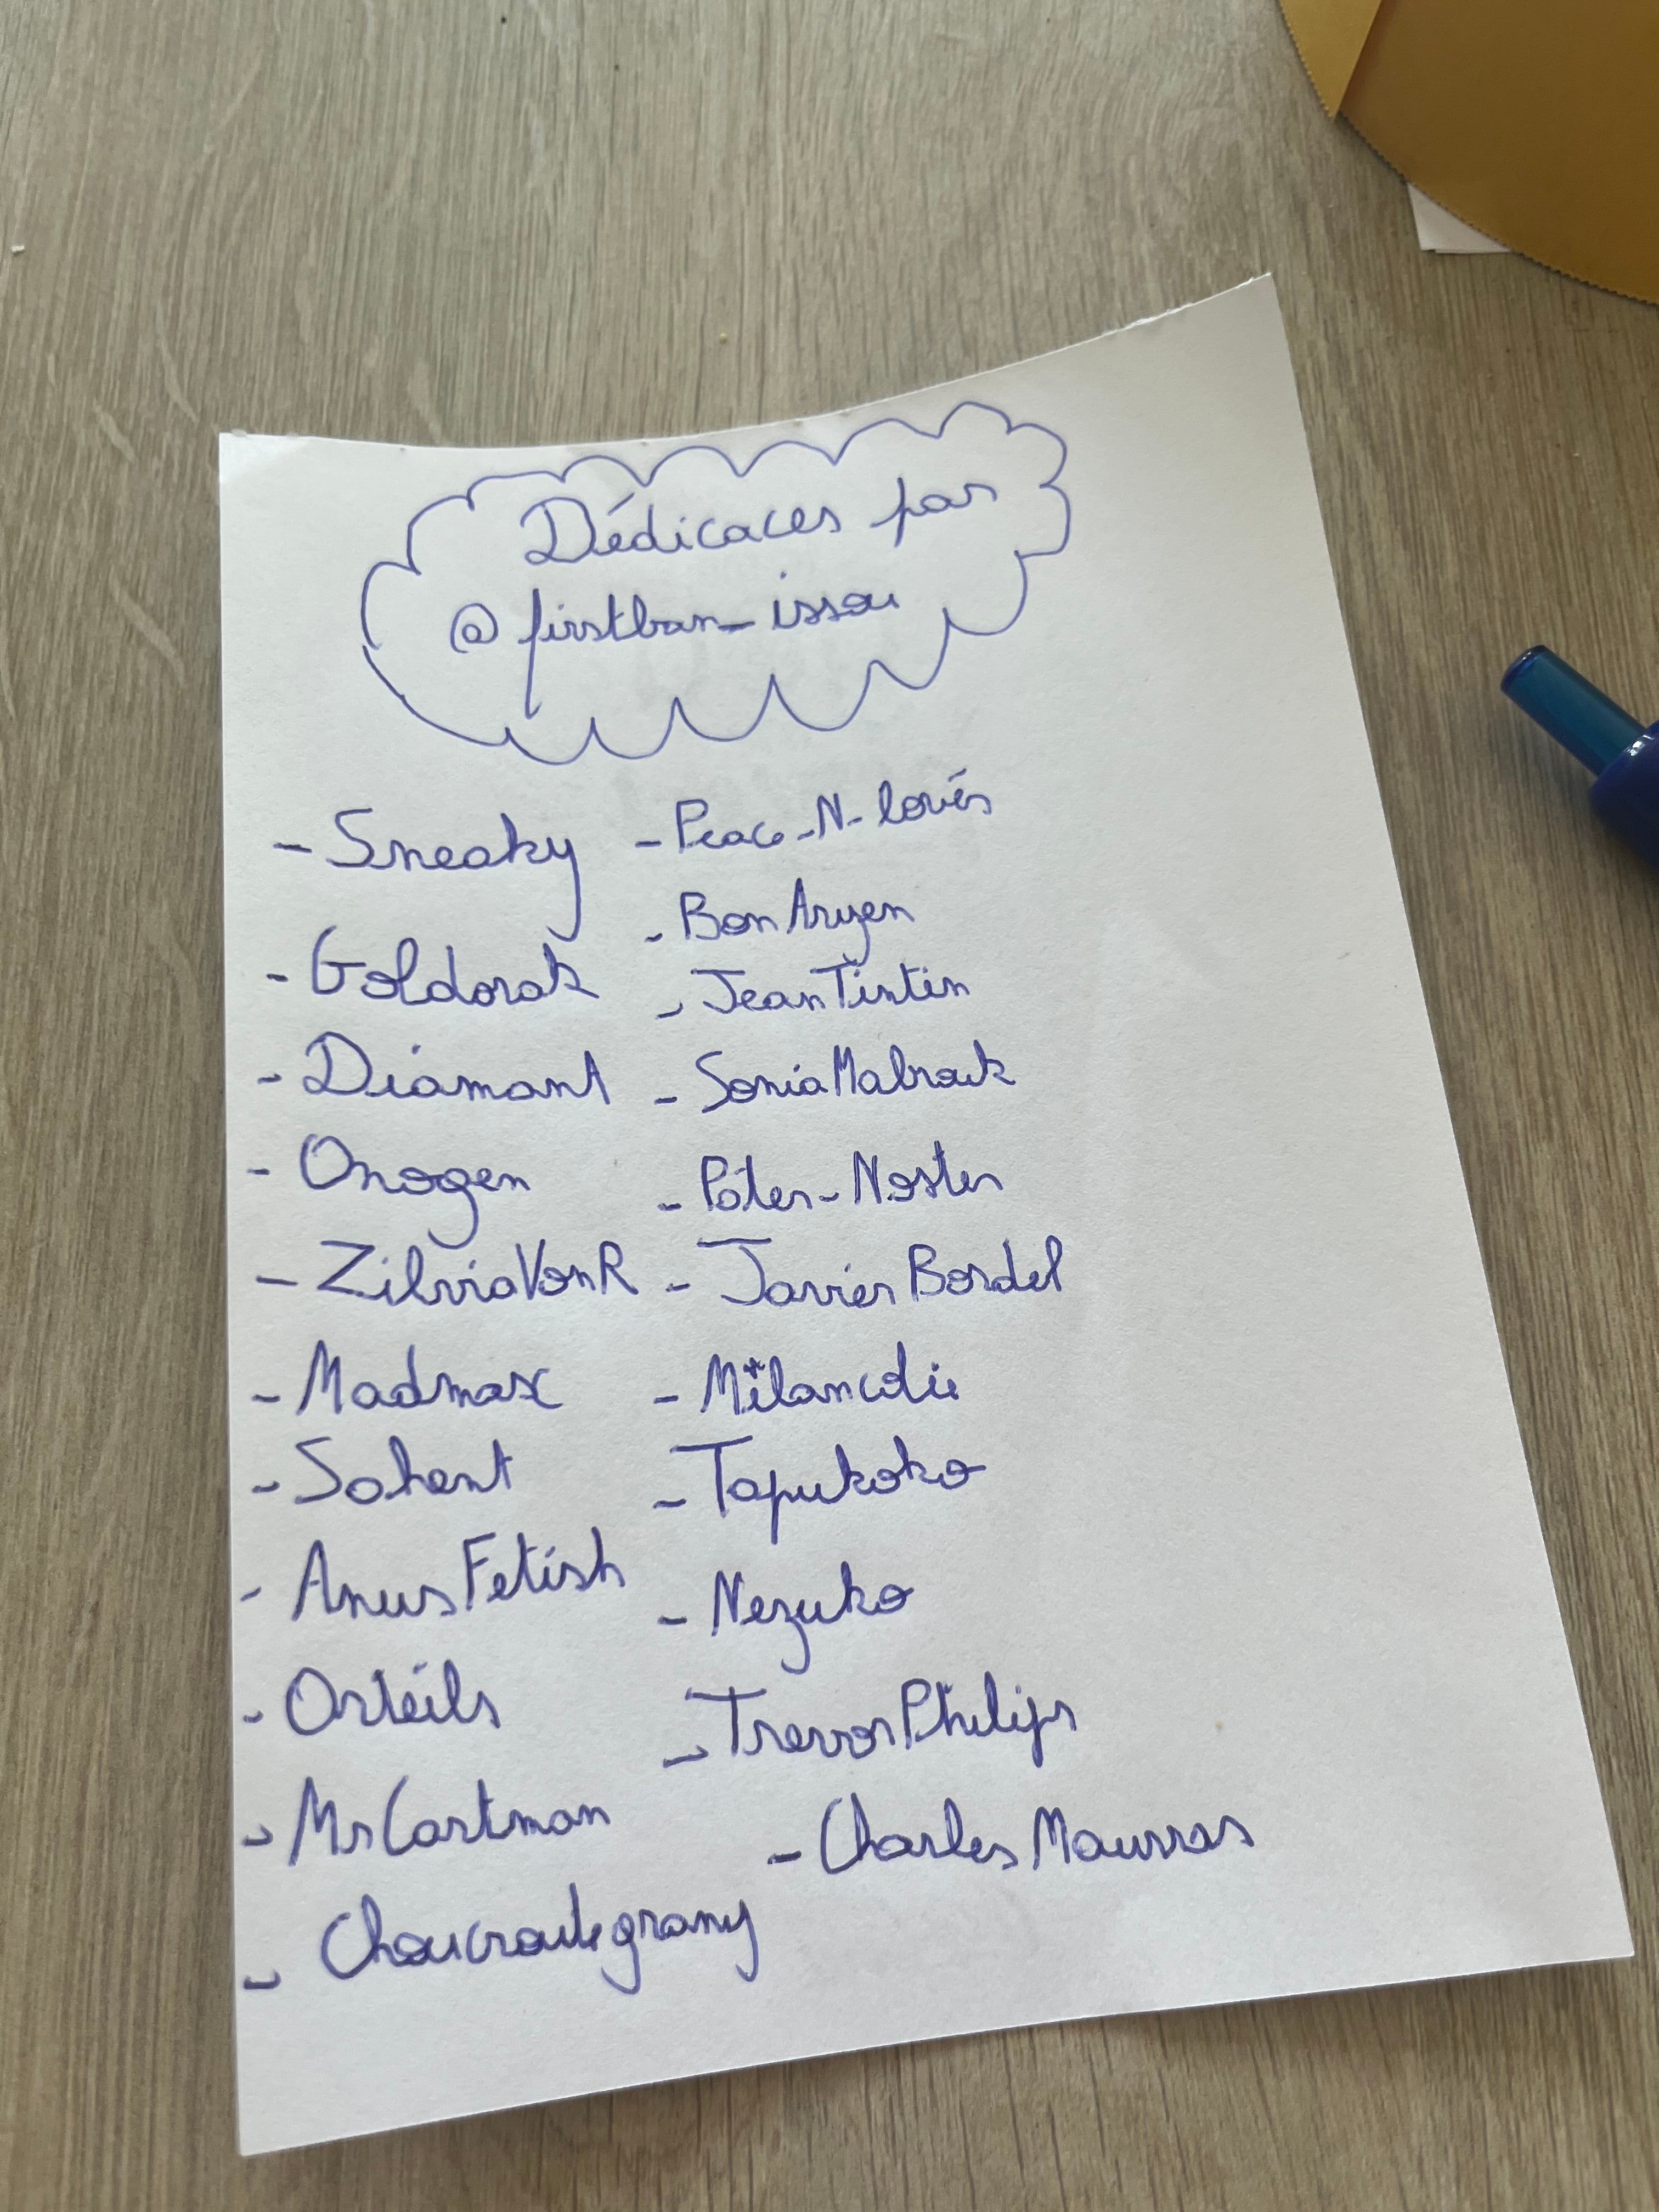 Dédicaces par
@firstban_issou
- Sneaky
- Goldorak
- Diamant
- Onogen
- ZilviaVonR
- Madmax
- Sohent
- AnusFetish
- Orteils
- MrCartman
- Choucroutegramy
- Peace-N-lovés
- BonAryen
- JeanTintin
- SoniaMabrouk
- Pater-Noster
- JavierBordel
- Mélancolie
- Tapukoko
- Nezuko
- TrevorPhilips
- CharlesMaurras